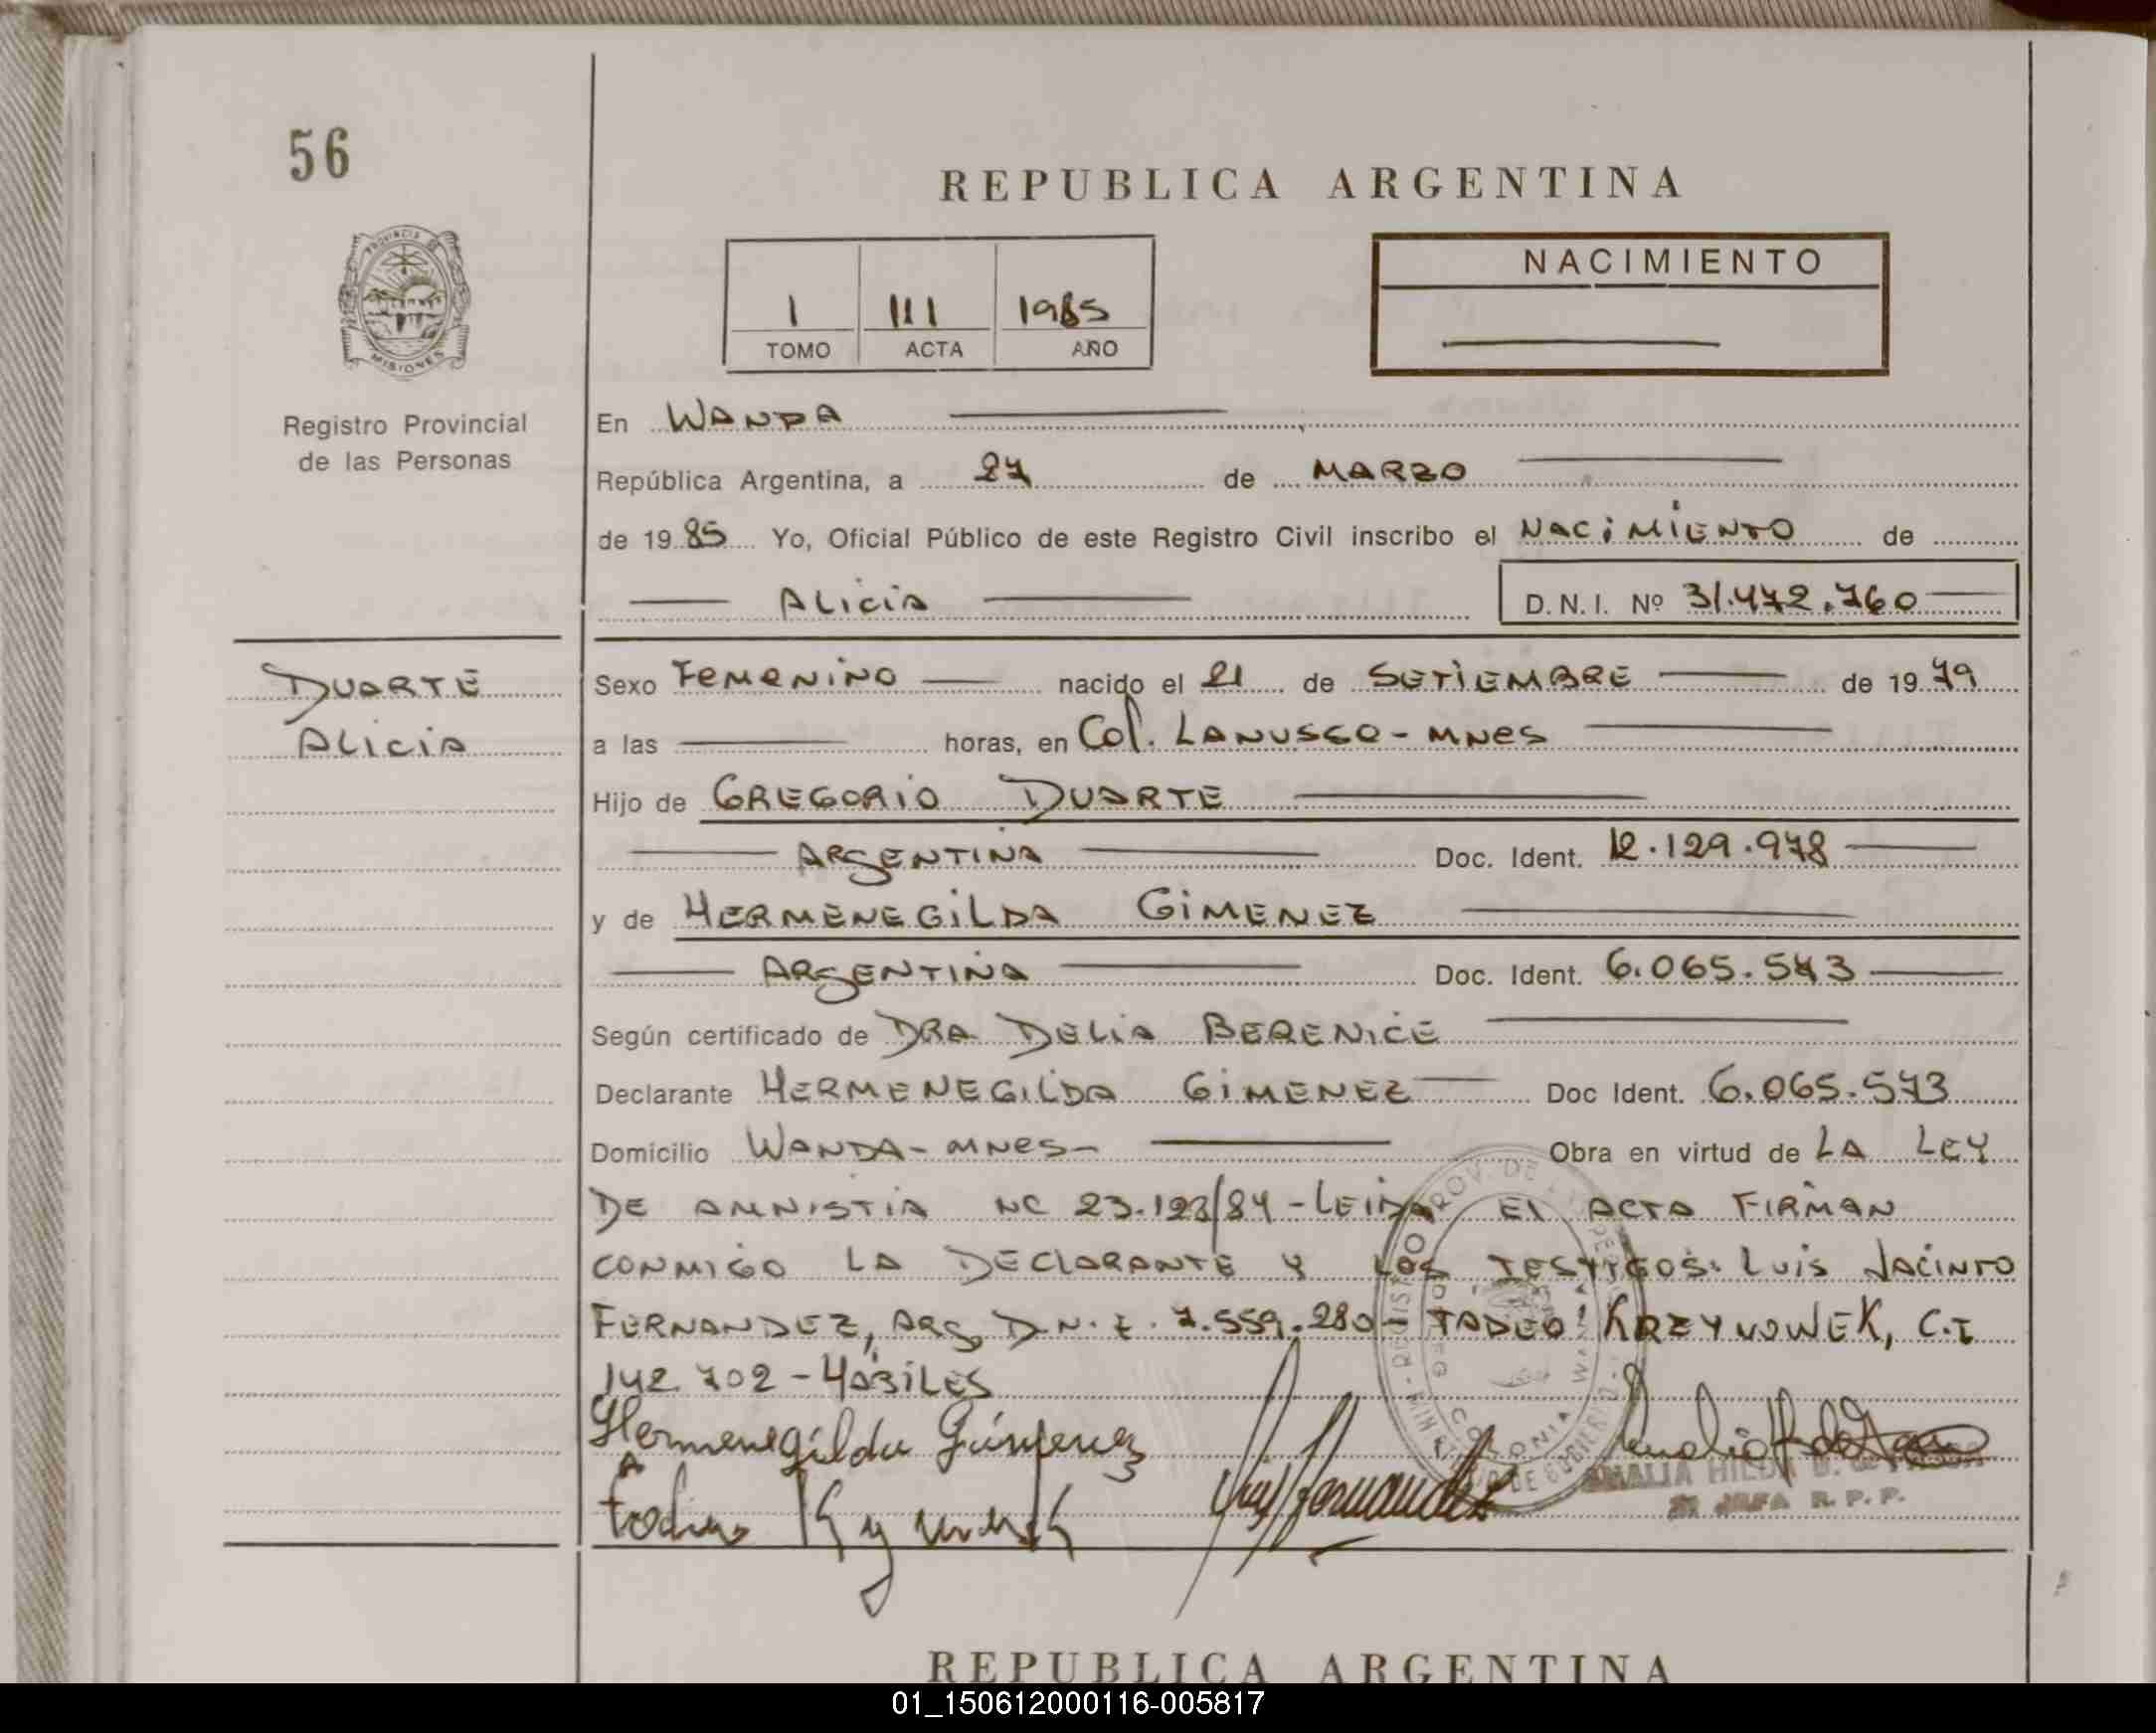 56
REPUBLICA ARGENTINA
PROVINCIA DE
MISIONES
Registro Provincial
de las Personas
1 111 1985
TOMO ACTA AÑO
NACIMIENTO
En WANDA
República Argentina, a 27 de MARZO
de 1985 Yo, Oficial Público de este Registro Civil inscribo el NACIMIENTO de
ALICIA D.N.I. Nº 31.472.760
DUARTE
ALICIA
Sexo FEMENINO nacido el 21 de SETIEMBRE de 1979
a las horas, en Col. LANUSSE - MNES
Hijo de GREGORIO DUARTE
ARGENTINA Doc. Ident. 12.129.978
y de HERMENEGILDA GIMENEZ
ARGENTINA Doc. Ident. 6.065.573
Según certificado de DRA DELIA BERENICE
Declarante HERMENEGILDA GIMENEZ Doc Ident. 6.065.573
Domicilio WANDA - MNES - Obra en virtud de LA LEY
DE AMNISTIA 23.128/84 - LEIDA EL ACTA FIRMAN
CONMIGO LA DECLARANTE Y LOS TESTIGOS: LUIS JACINTO
FERNANDEZ, ARG. D.N.I. 7.559.280 - TADEO KRZYVOWEK, C.I
142.702 - HÁBILES
Hermenegilda Giménez
Luis Fernandez
AMALIA HILDA
JEFA R.P.P.
REPUBLICA ARGENTINA
01_150612000116-005817